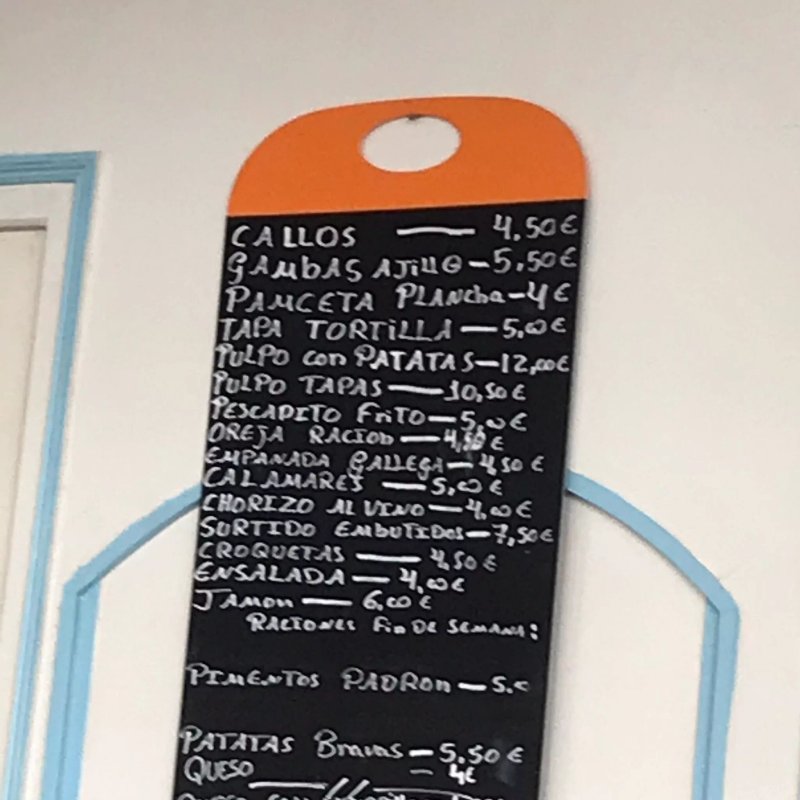 CALLOS — 4,50€
GAMBAS AJILLO — 5,50€
PAMCETA PLANCHA — 4€
TAPA TORTILLA — 5,00€
PULPO con PATATAS — 12,00€
PULPO TAPAS — 10,50€
PESCADITO FRITO — 5,00€
OREJA RACION — 4,50€
EMPANADA GALLEGA — 4,50€
CALAMARES — 5,00€
CHORIZO AL VINO — 4,00€
SURTIDO EMBUTIDOS — 7,50€
CROQUETAS — 4,50€
ENSALADA — 4,00€
JAMON — 6,00€
RACIONES FIN DE SEMANA:
PIMENTOS PADRON — 5.
PATATAS Bravas — 5.50€
QUESO — 4€